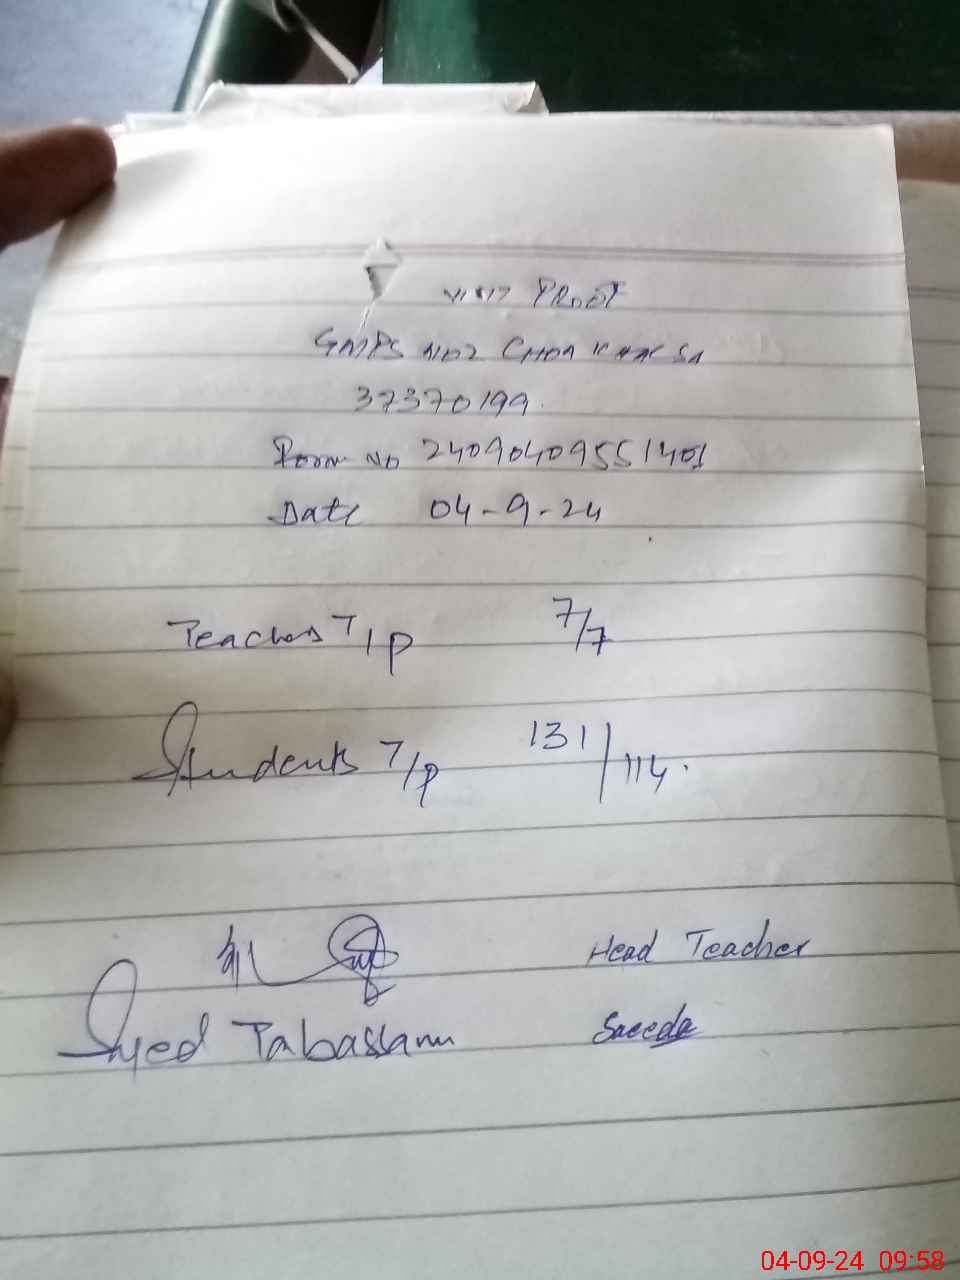 VISIT PROOF
GMPS NO2 CHOA
37370199.
Form No 24090409551401
Date 04-9-24
Teachers T/P 7/7
Students T/P 131/114.
Head Teacher
Syed Tabassam Saeeda
04-09-24 09:58